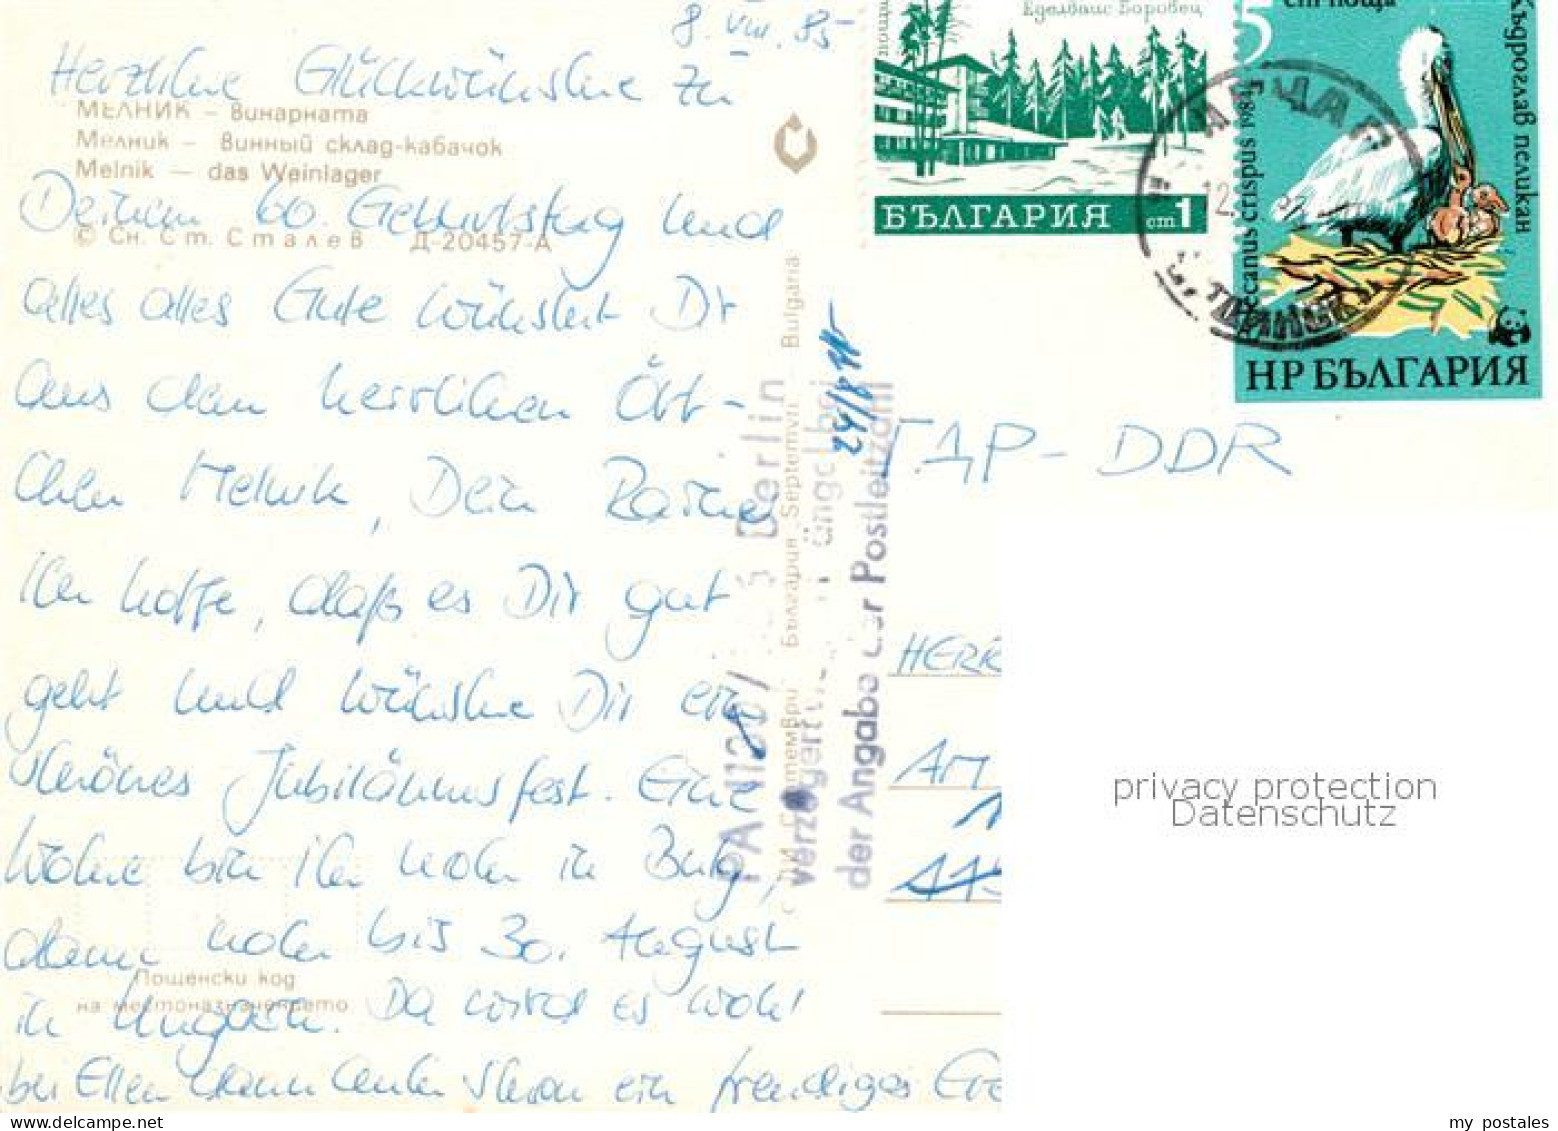 8. VIII. 85
Herzliche Glückwünsche zu
МЕЛНИК – Винарната
Мелник – Винный склад-кабачок
Melnik — das Weinlager
Deinem 60. Geburtstag und
© Сн. Ст. Сталев Д-20457-А
alles alles Gute wünscht Dir
aus dem herrlichen Ört-
chen Melnik, Dein Rainer
Ich hoffe, daß es Dir gut
geht und wünsche Dir ein
schönes Jubiläumsfest. Eine
Woche bin ich noch in Bulg,
dann noch bis 30. August
Пощенски код
на местоназначението
in Ungarn. Da wird es wohl
bei Ellen dann auch schon ein freudiges Ere
ДИ „Септември“ България „Septemvri“ Bulgaria
Berlin
verzögert
der Angabe der Postleitzahl
24/8
Еделвайс Боровец
БЪЛГАРИЯ ст1
5
ст поща
Къдроглав пеликан
Pelecanus crispus 1984
НР БЪЛГАРИЯ
ГДР – DDR
HERR
AM
privacy protection
Datenschutz
my postales